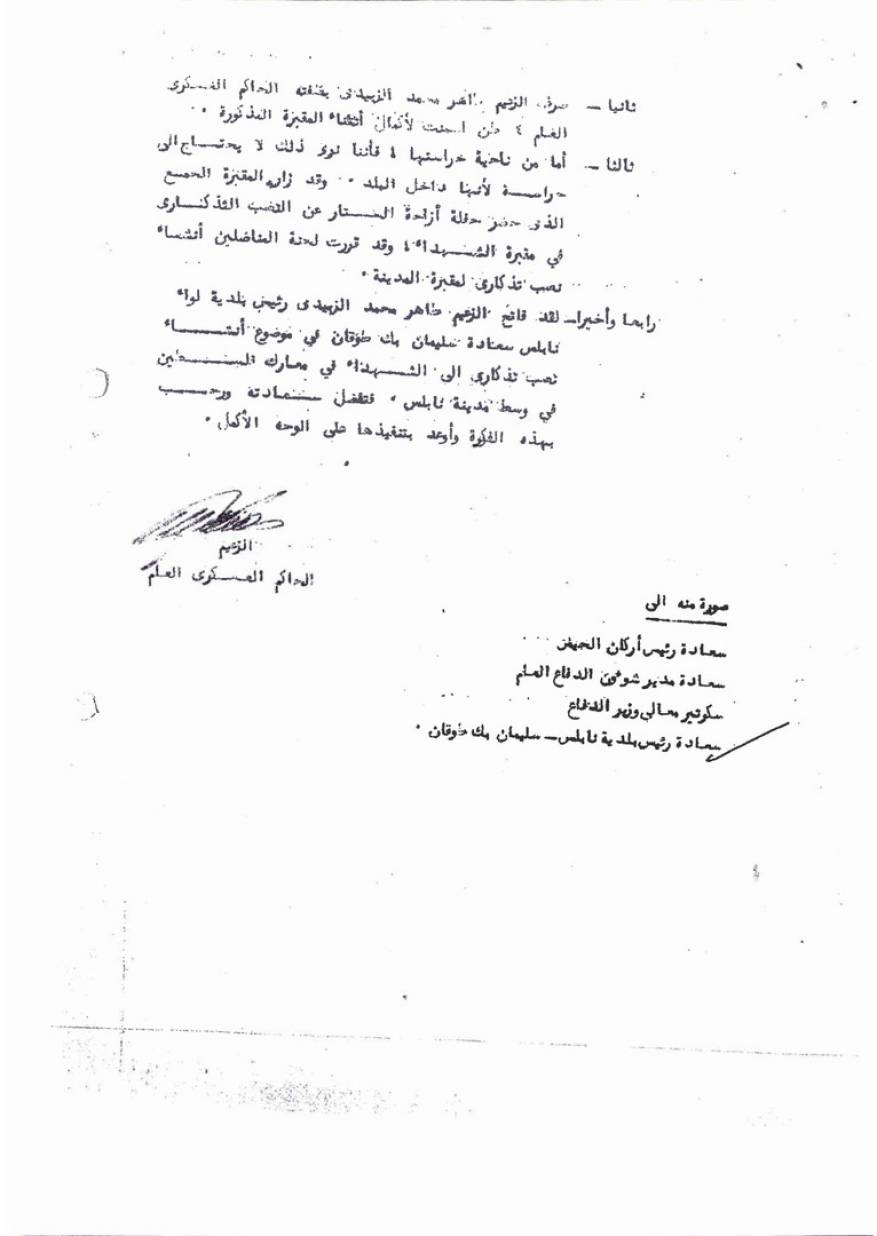 ثانيا — صرف الزعيم طاهر محمد الزبيدى بصفته الحاكم العسكرى
العام ٤ طن اسمنت لأكمال أنشاء المقبرة المذكورة ٠
ثالثا — أما من ناحية حراستها ، فأننا نرى ذلك لا يحتــاج الى
حراســـة لأنها داخل البلد ٠ وقد زار المقبرة الجميع
الذى حضر حفلة أزاحة الســتار عن النصب التذكــارى
في مقبرة الشــهداء ، وقد قررت لجنة المناضلين أنشــاء
نصب تذكارى لمقبرة المدينة ٠
رابعا وأخيرا — لقد فاتح الزعيم طاهر محمد الزبيدى رئيس بلدية لواء
نابلس سعادة سليمان بك طوقان في موضوع أنشــــاء
نصب تذكارى الى الشــهداء في معارك فلســطين
في وسط مدينة نابلس ٠ فتفضل ســعادته ورحــب
بهذه الفكرة وأوعد بتنفيذها على الوجه الأكمل ٠
الزعيم
الحاكم العســكرى العام
صورة منه الى
سعادة رئيس أركان الجيش
سعادة مدير شوءون الدفاع العام
سكرتير معالي وزير الدفاع
سعادة رئيس بلدية نابلس — سليمان بك طوقان ٠